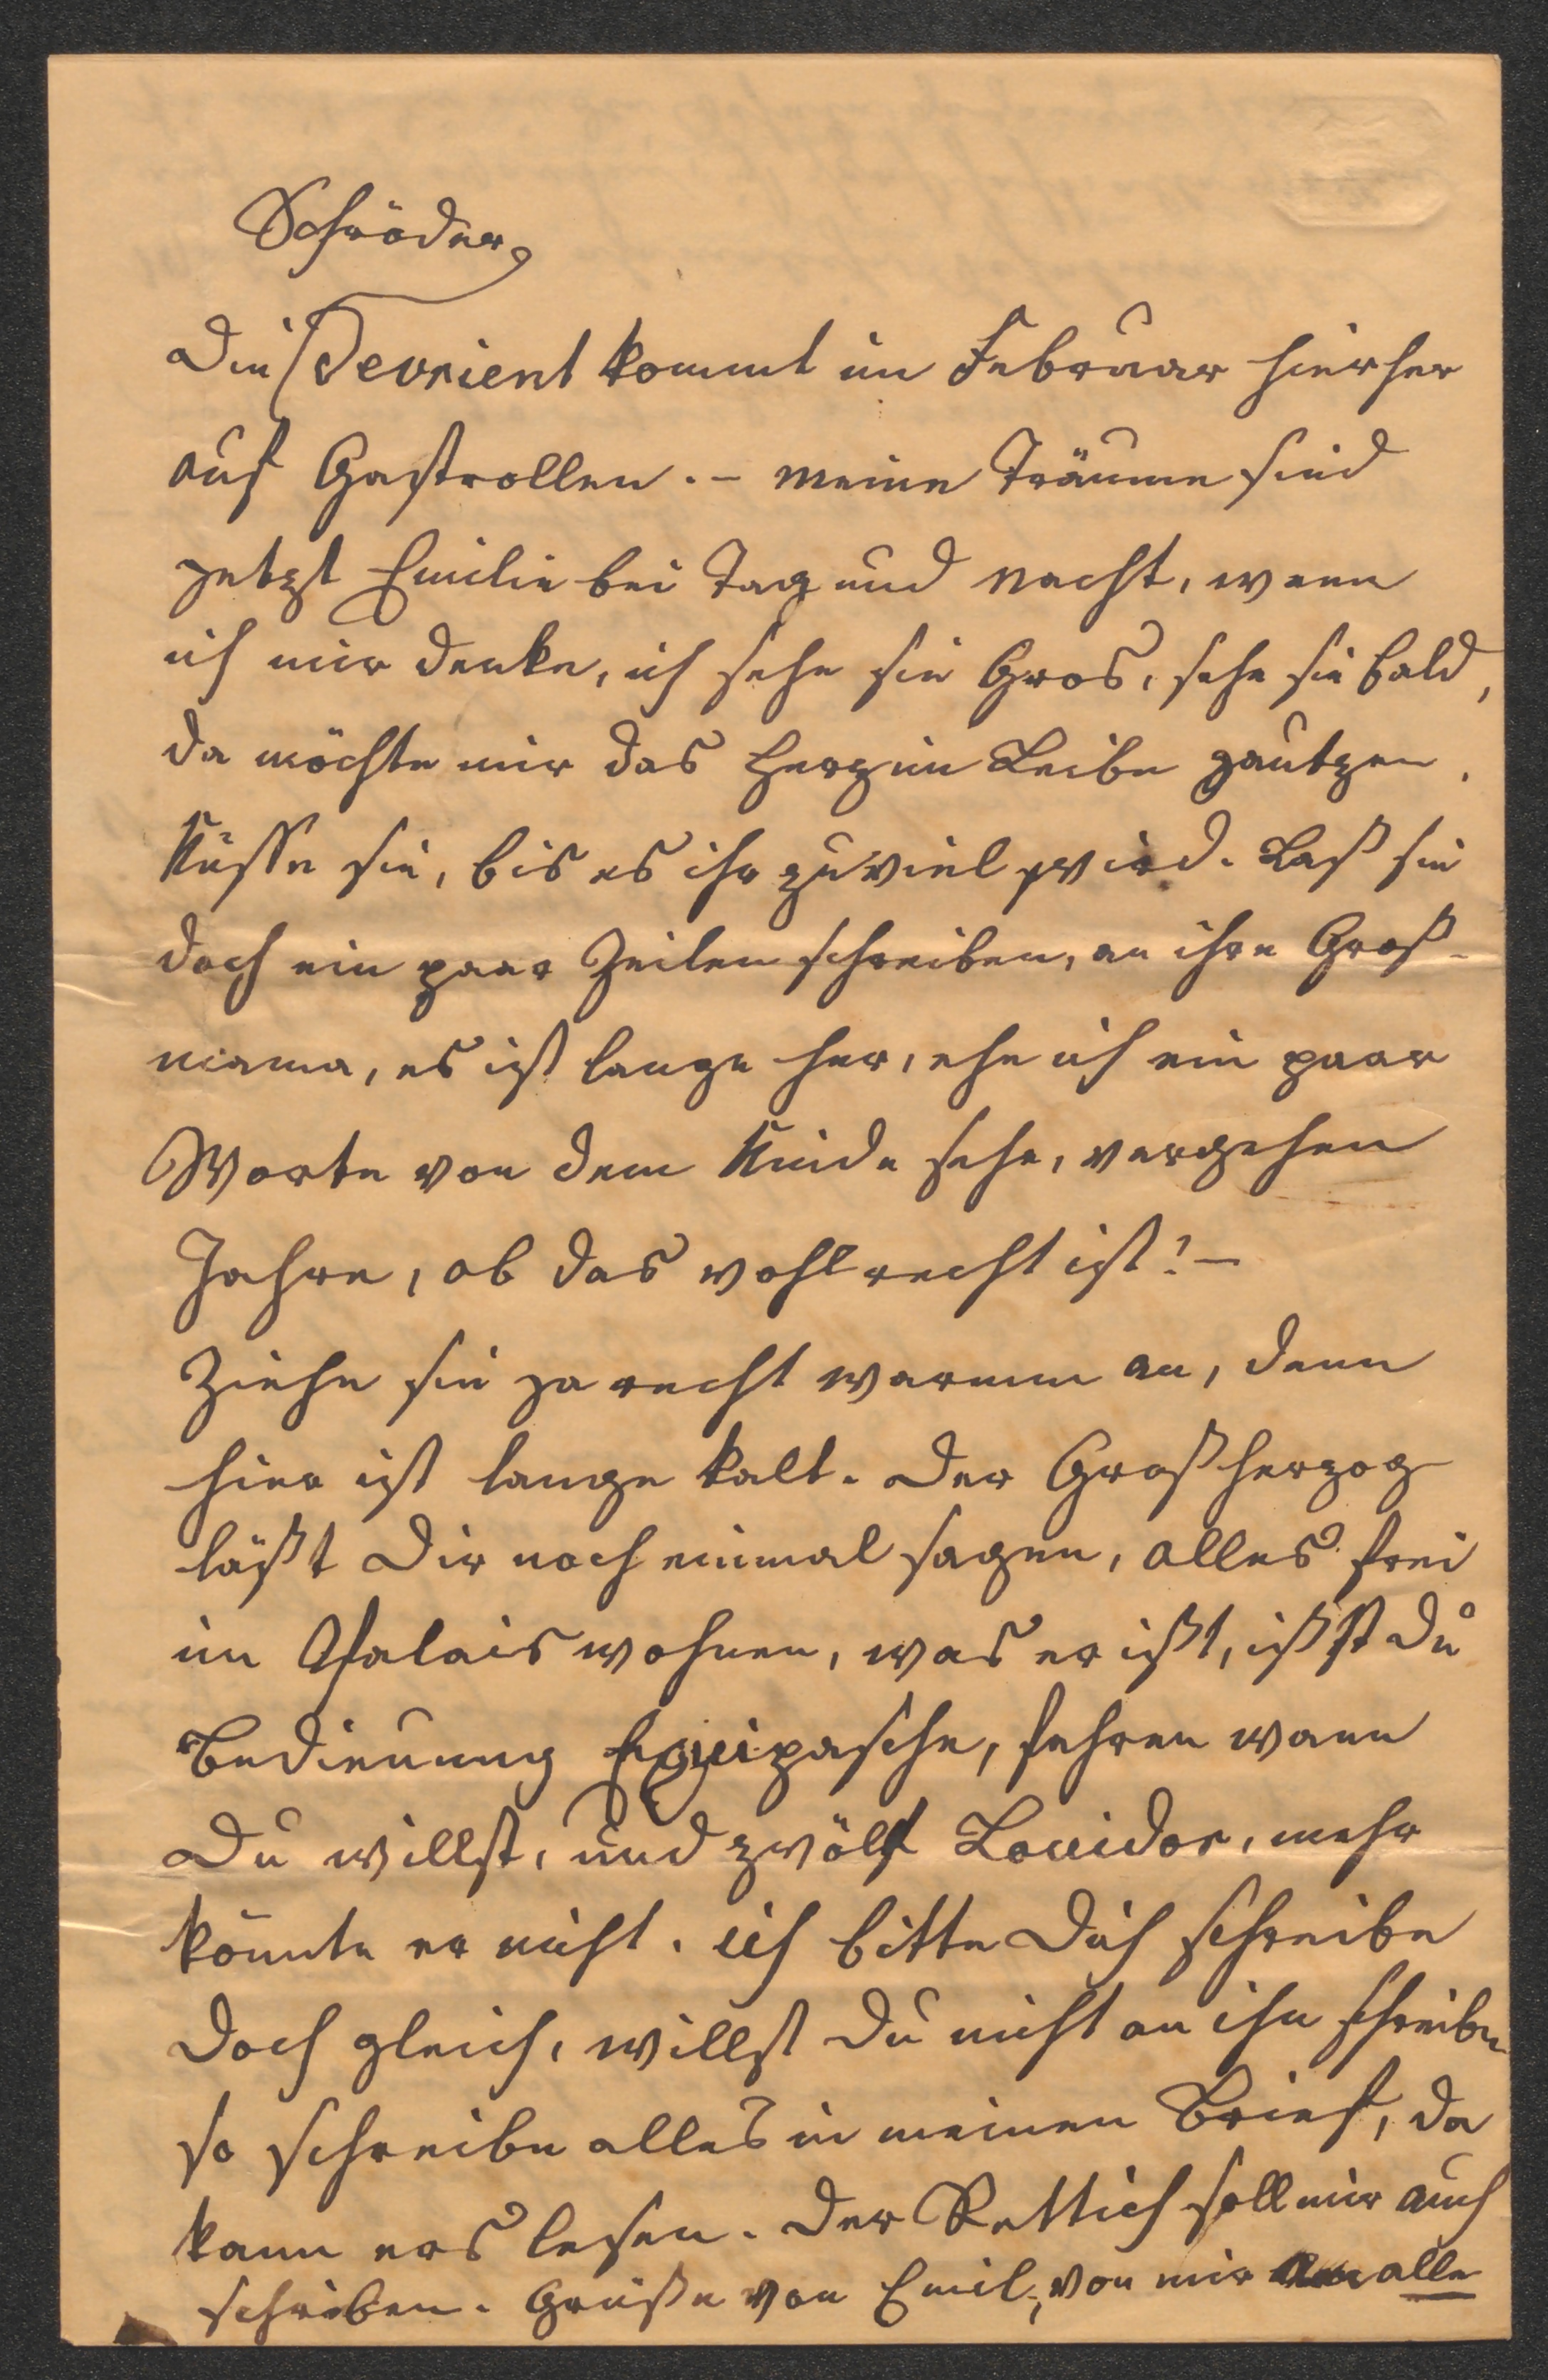 Schröder
Die Devrient kommt im Februar hierher
auf Gastrollen. - meine Träume sind
jetzt Emilie bei Tag und nacht, wenn
ich mir denke, ich sehe sie Gros, sehe sie bald,
da möchte mir das Herz im Leibe jautzen.
Küsse sie, bis es ihr zuviel wird. Laß sie
doch ein paar Zeilen schreiben, an ihre Groß-
mama, es ist lange her, ehe ich ein paar
Worte von dem Kinde sehe, vergehen
Jahre, ob das wohl recht ist! -
Ziehe sie ja recht warmm an, denn
hier ist lange kalt. Der Großherzog
läßt Dir noch einmal sagen, alles frei
im Palais wohnen, was er ißt, ißst Du
Bedienung Equipasche, fahren wann
Du willst, und zwölf Louidor, mehr
könnte er nicht. ich bitte Dich schreibe
doch gleich, willst Du nicht an ihn schreiben
so schreibe alles in meinen Brief, da
kann ers lesen. Der Rettich soll mir auch
schreiben. Grüße von Emil, von mir an alle